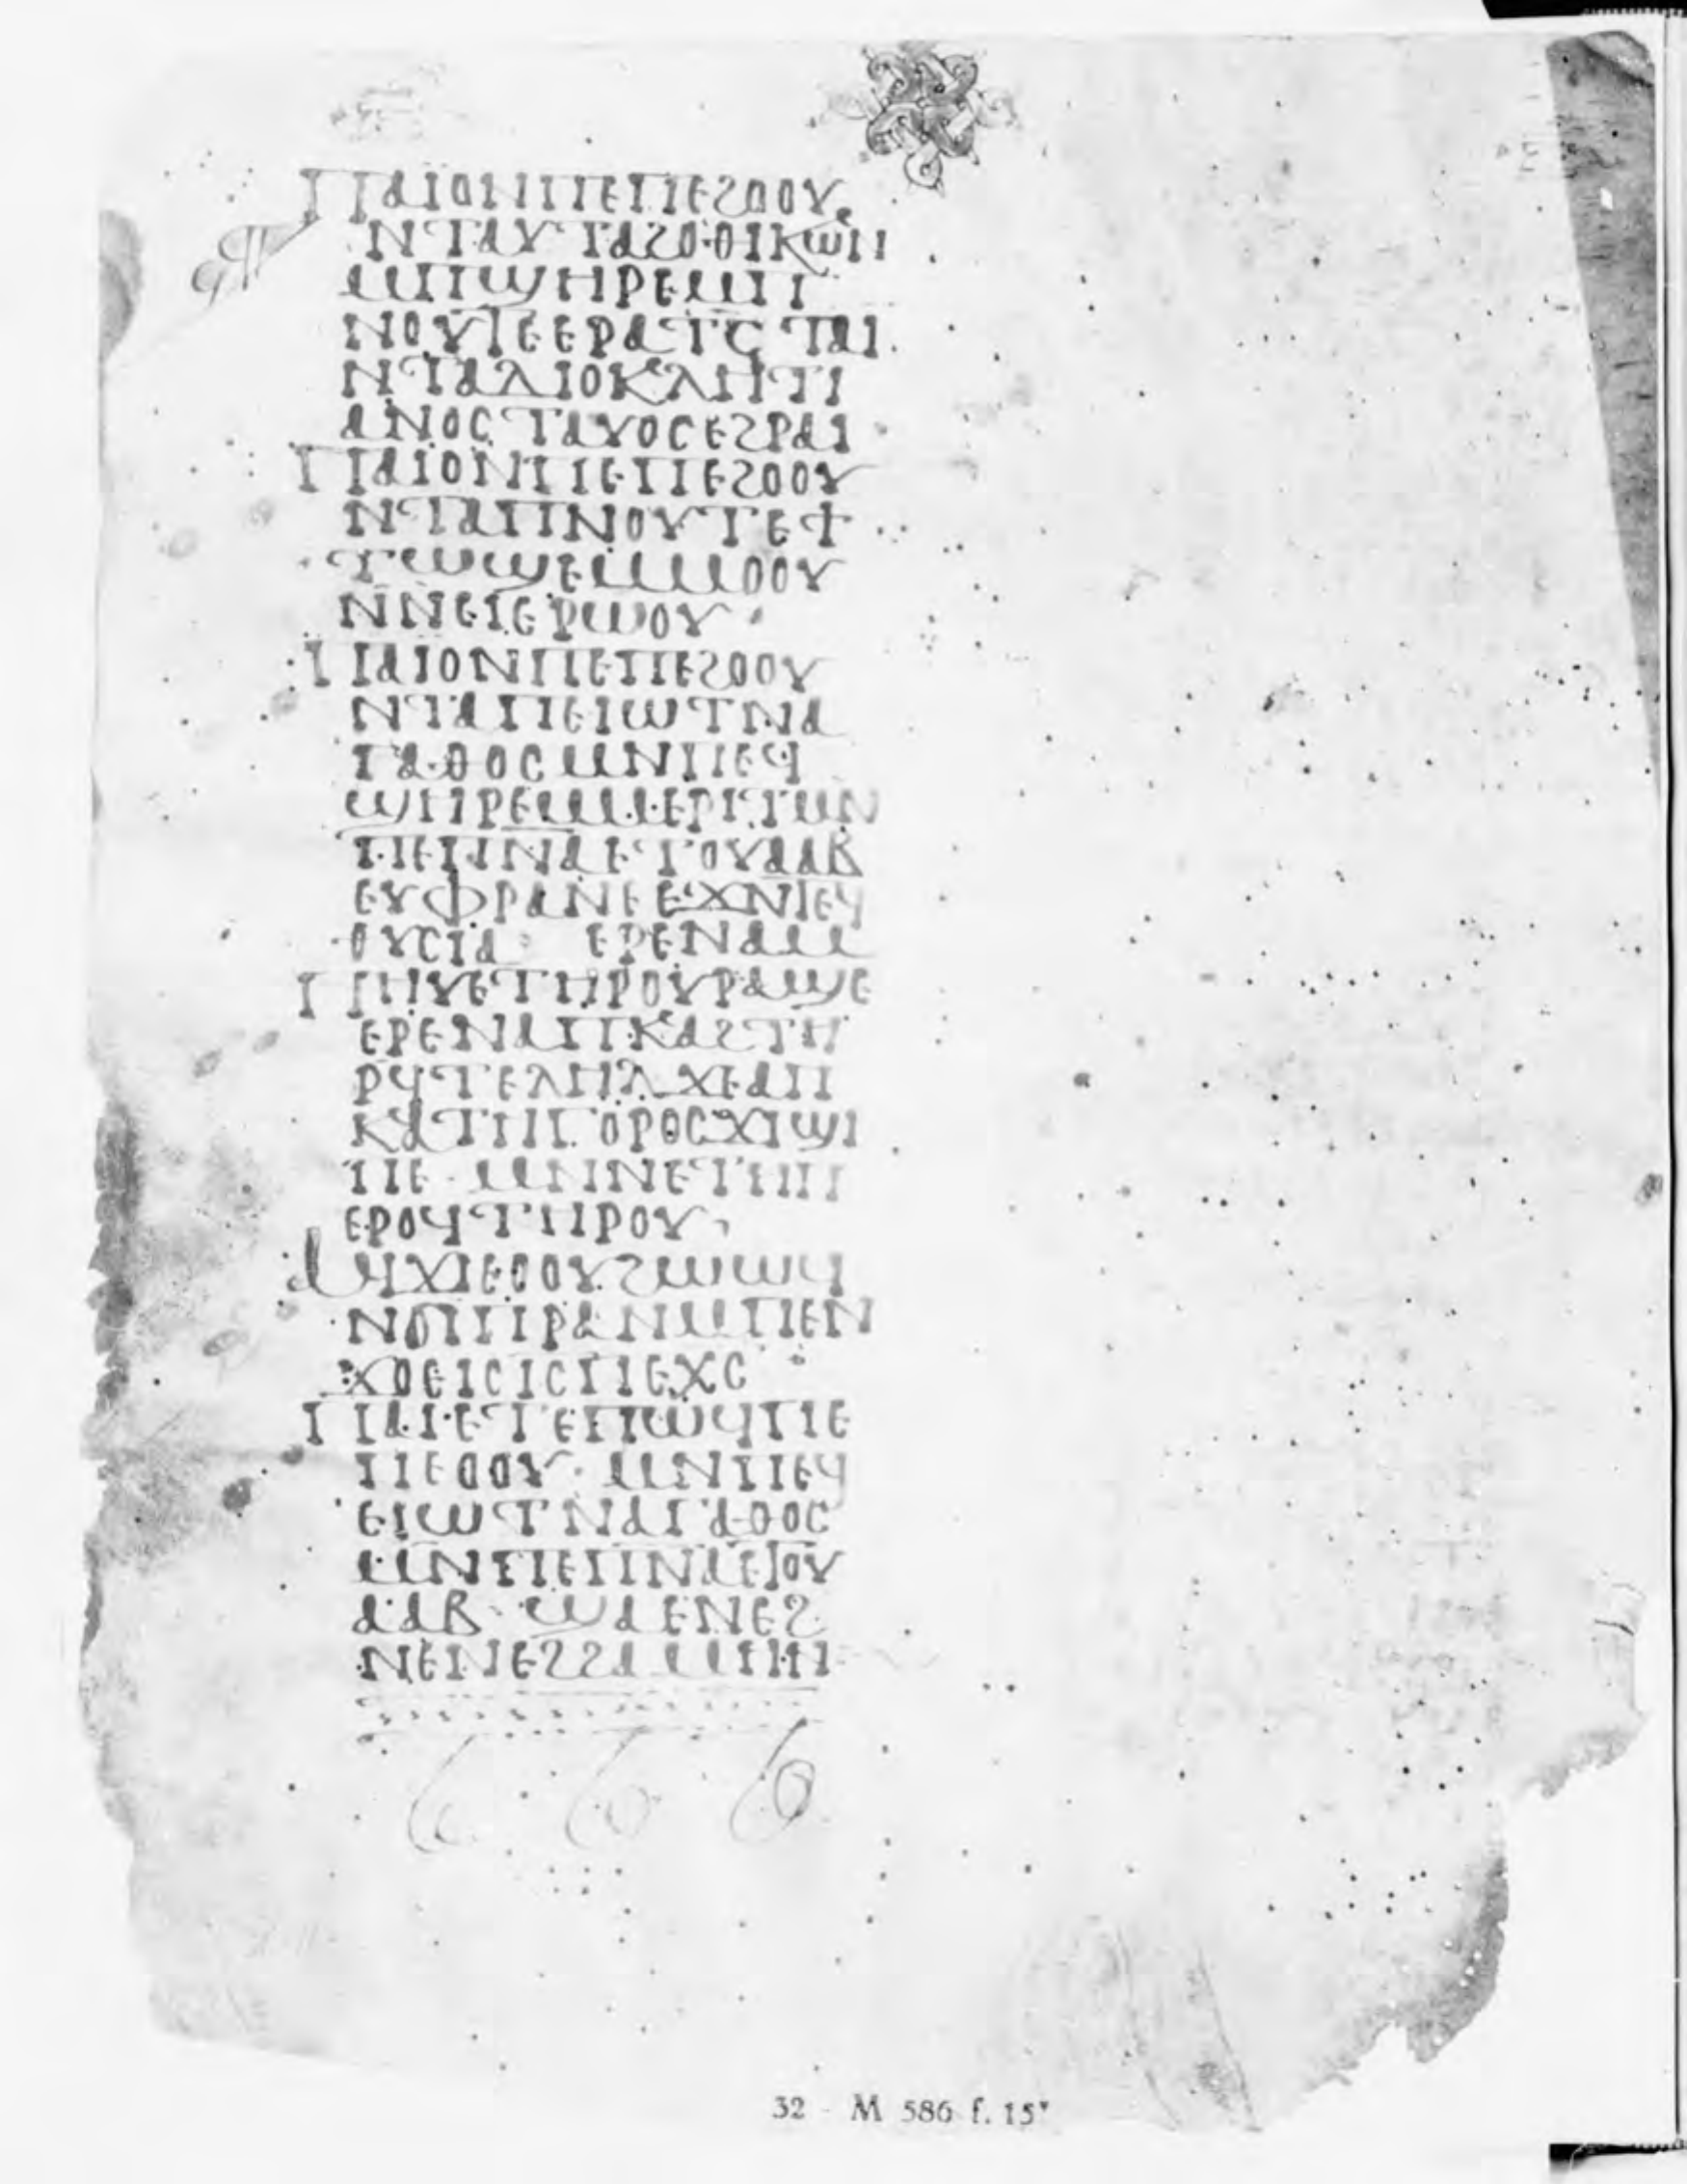 ⲠⲀⲒⲞⲚⲠⲈⲠⲈϨⲞⲞⲨ
ⲚⲦⲀⲨⲦⲀϨⲞⲐⲒⲔⲰⲚ
ⲘⲠϢⲎⲢⲈⲘⲠ
ⲚⲞⲨⲦⲈⲈⲢⲀⲦⲤ ⲦⲀⲒ
ⲚⲦⲀⲆⲒⲞⲔⲖⲎⲦⲒ
ⲀⲚⲞⲤ ⲦⲀⲨⲞⲤⲈϨⲢⲀⲒ
ⲠⲀⲒⲞⲚⲠⲈⲠⲈϨⲞⲞⲨ
ⲚⲦⲀⲠⲚⲞⲨⲦⲈϮ
ⲦⲰϢⲈⲘⲘⲞⲞⲨ
ⲚⲚⲈⲒⲈⲢⲰⲞⲨ
ⲠⲀⲒⲞⲚⲠⲈⲠⲈϨⲞⲞⲨ
ⲚⲦⲀⲠⲈⲒⲰⲦⲚⲀ
ⲄⲀⲐⲞⲤⲘⲚⲠⲈϤ
ϢⲎⲢⲈⲘⲘⲈⲢⲒⲦⲘⲚ
ⲠⲈⲠⲚⲀⲈⲦⲞⲨⲀⲀⲂ
ⲈⲨⲪⲢⲀⲚⲈⲈϪⲚⲦⲈϤ
ⲞⲨⲤⲒⲀ ⲈⲢⲈⲚⲀⲘ
ⲠⲎⲨⲈⲦⲎⲢⲞⲨⲢⲀϢⲈ
ⲈⲢⲈⲚⲀⲠⲔⲀϨⲦⲎ
ⲢϤⲦⲈⲖⲎⲖ ϪⲈⲀⲠ
ⲔⲀⲦⲎⲄⲞⲢⲞⲤϪⲒϢⲒ
ⲠⲈ ⲘⲚⲚⲈⲦⲎⲠ
ⲈⲢⲞϤⲦⲎⲢⲞⲨ
ⲀϤϪⲒⲈⲞⲞⲨϨⲰⲰϤ
ⲚϬⲒⲠⲢⲀⲚⲘⲠⲈⲚ
ϪⲞⲈⲒⲤⲒⲤⲠⲈⲬⲤ
ⲠⲀⲒⲈⲦⲈⲠⲰϤⲠⲈ
ⲠⲈⲞⲞⲨ ⲘⲚⲠⲈϤ
ⲈⲒⲰⲦⲚⲀⲄⲀⲐⲞⲤ
ⲘⲚⲠⲈⲠⲚⲀⲈⲦⲞⲨ
ⲀⲀⲂ ϢⲀⲈⲚⲈϨ
ⲚⲈⲚⲈϨϨⲀⲘⲎⲚ
32 - M 586 f. 15ᵛ